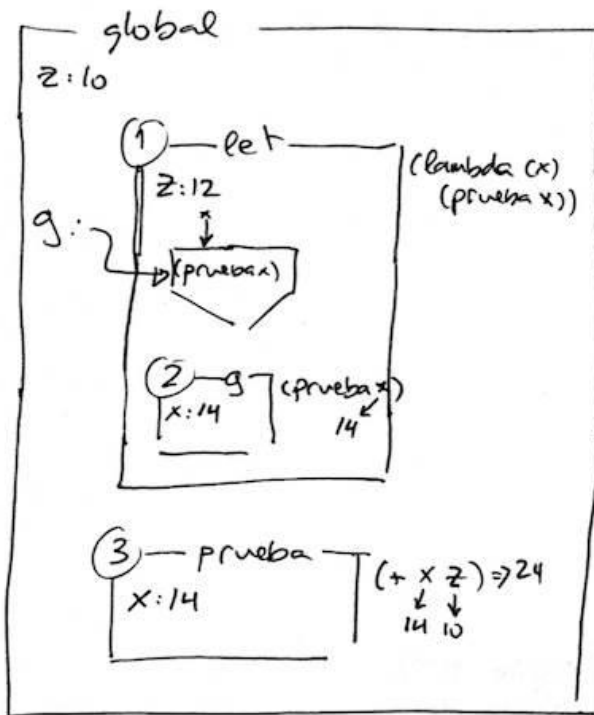 global
z:10
1
let
(lambda (x)
(prueba x))
z:12
x
g:
(prueba x)
2
g
(prueba x)
x:14
14
3
prueba
(+ x z) => 24
x:14
14 10